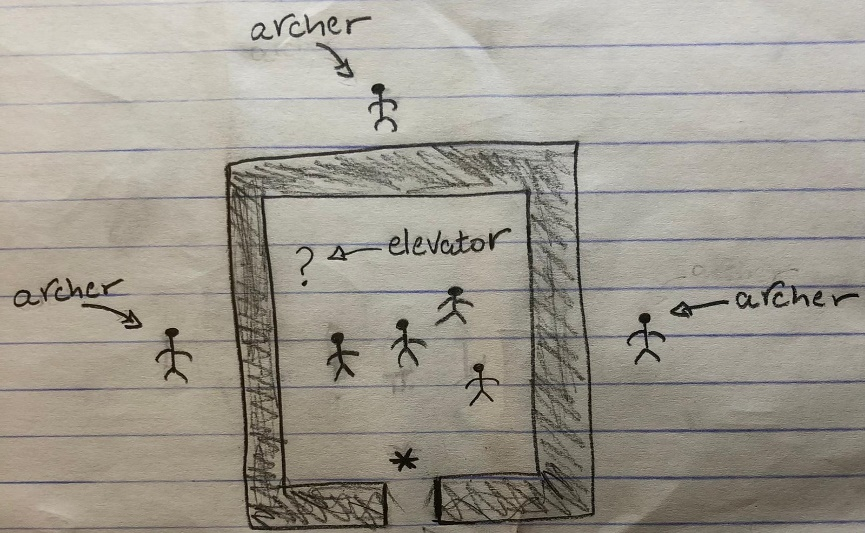 archer
? ← elevator
archer
archer
*